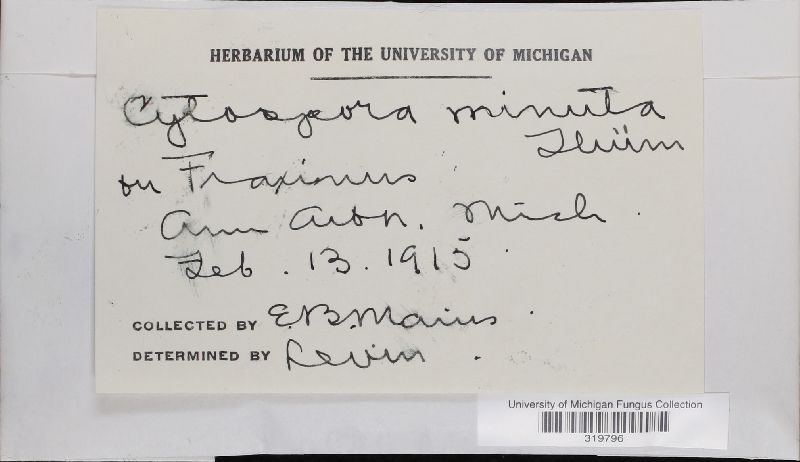 HERBARIUM OF THE UNIVERSITY OF MICHIGAN
Cytospora minuta
Thüm
on Fraxinus
Ann Arbor, Mich.
Feb. 13. 1915
COLLECTED BY E.B. Mains.
DETERMINED BY Levin.
University of Michigan Fungus Collection
319796